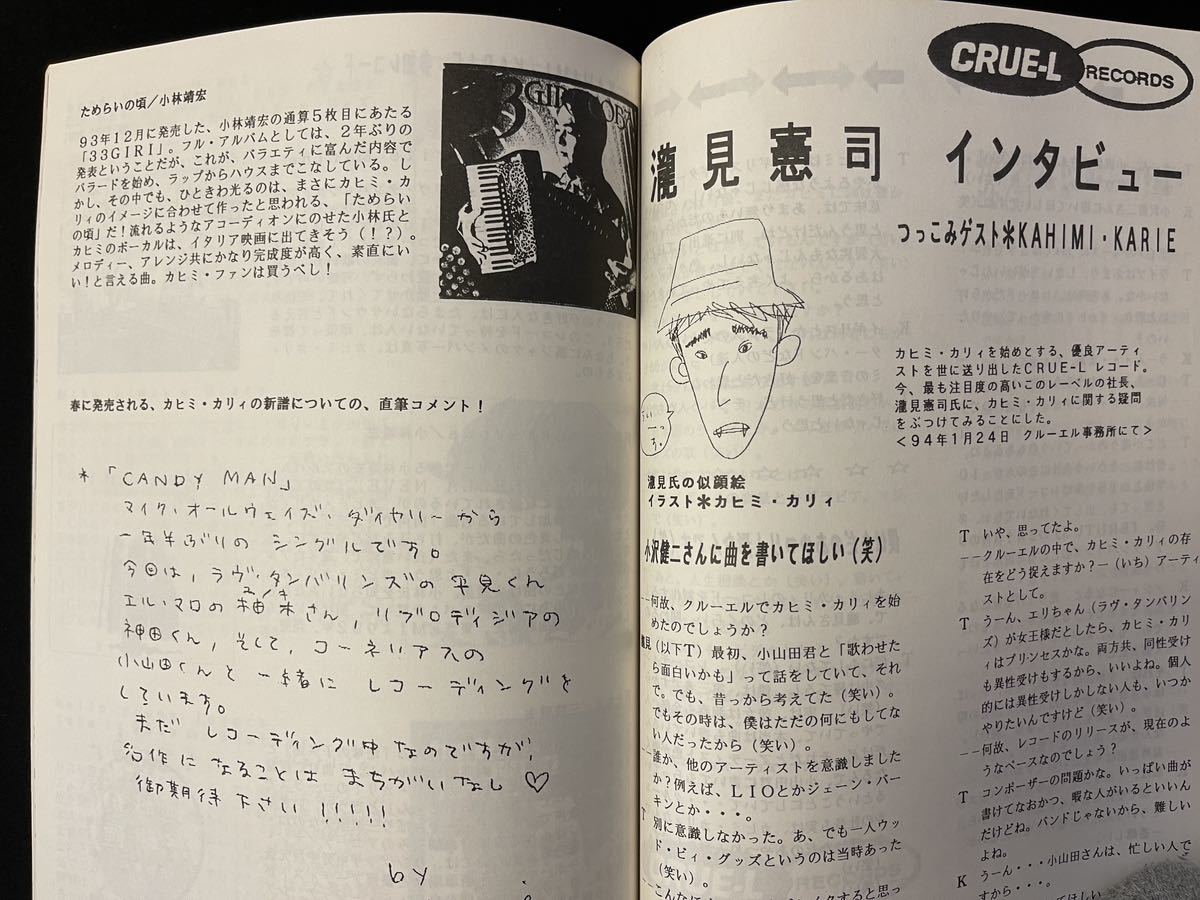 ためらいの頃／小林靖宏
93年12月に発売した、小林靖宏の通算5枚目にあたる
「33GIRI」。フル・アルバムとしては、2年ぶりの
発表ということだが、これが、バラエティに富んだ内容で
バラードを始め、ラップからハウスまでこなしている。し
かし、その中でも、ひときわ光るのは、まさにカヒミ・カ
リィのイメージに合わせて作ったと思われる、「ためらい
の頃」だ！流れるようなアコーディオンにのせた小林氏と
カヒミのボーカルは、イタリア映画に出てきそう（！？）。
メロディー、アレンジ共にかなり完成度が高く、素直にい
い！と言える曲。カヒミ・ファンは買うべし！
春に発売される、カヒミ・カリィの新譜についての、直筆コメント！
* 「CANDY MAN」
マイク・オールウェイズ・ダイヤリーから
一年半ぶりのシングルです。
今回は、ラヴ・タンバリンズの平見くん
エル・マロの柚木さん、リブロデイジアの
ユノキ
神田くん、そして、コーネリアスの
小山田くんと一緒にレコーディングを
しています。
まだレコーディング中なのですが、
名作になることはまちがいなし♡
御期待下さい！！！！！
by
CRUE-L RECORDS
瀧見憲司 インタビュー
つっこみゲスト＊KAHIMI・KARIE
カヒミ・カリィを始めとする、優良アーティ
ストを世に送り出したCRUE-L レコード。
今、最も注目度の高いこのレーベルの社長、
瀧見憲司氏に、カヒミ・カリィに関する疑問
をぶつけてみることにした。
＜94年1月24日　クルーエル事務所にて＞
瀧見氏の似顔絵
イラスト＊カヒミ・カリィ
小沢健二さんに曲を書いてほしい（笑）
――何故、クルーエルでカヒミ・カリィを始
めたのでしょうか？
瀧見（以下T）最初、小山田君と「歌わせた
ら面白いかも」って話をしていて、それ
で。でも、昔っから考えてた（笑い）。
でもその時は、僕はただの何にもしてな
い人だったから（笑い）。
――誰か、他のアーティストを意識しました
か？例えば、LIOとかジェーン・バー
キンとか・・・。
T 別に意識しなかった。あ、でも一人ウッ
ド・ビィ・グッズというのは当時あった
（笑い）。
T いや、思ってたよ。
――クルーエルの中で、カヒミ・カリィの存
在をどう捉えますか？一（いち）アーティ
ストとして。
T うーん、エリちゃん（ラヴ・タンバリン
ズ）が女王様だとしたら、カヒミ・カリ
ィはプリンセスかな。両方共、同性受け
も異性受けもするから、いいよね。個人
的には異性受けしかしない人も、いつか
やりたいんですけど（笑い）。
――何故、レコードのリリースが、現在のよ
うなペースなのでしょう？
T コンポーザーの問題かな。いっぱい曲が
書けてなおかつ、暇な人がいるといいん
だけどね。バンドじゃないから、難しい
よね。
K うーん・・・小山田さんは、忙しい人で
すから・・・。